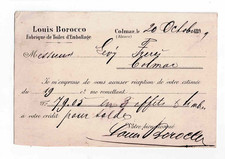 Louis Borocco
Fabrique de Toiles d'Emballage
Colmar, le 20 Octobre
(Alsace)
Messieurs Levy Frères
Colmar
Je m'empresse de vous accuser réception de votre estimée
du 19 me remettant
79.03 en
à votre crédit pour solde
Louis Borocco